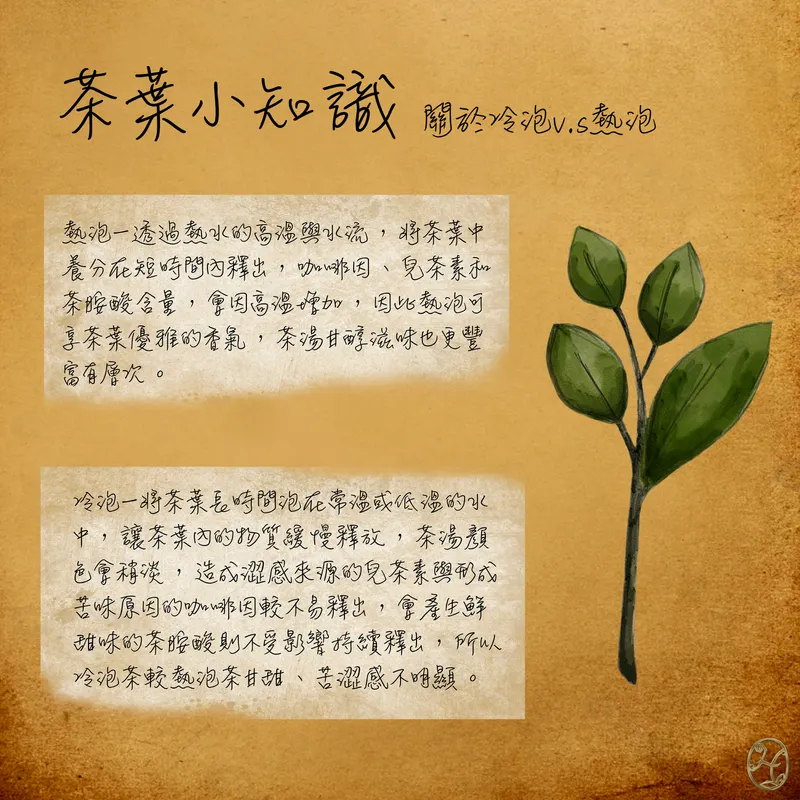 茶葉小知識 關於冷泡v.s熱泡
熱泡一透過熱水的高溫與水流，將茶葉中
養分在短時間內釋出，咖啡因、兒茶素和
茶胺酸含量，會因高溫增加，因此熱泡可
享茶葉優雅的香氣，茶湯甘醇滋味也更豐
富有層次。
冷泡一將茶葉長時間泡在常溫或低溫的水
中，讓茶葉內的物質緩慢釋放，茶湯顏
色會稍淡，造成澀感來源的兒茶素與形成
苦味原因的咖啡因較不易釋出，會產生鮮
甜味的茶胺酸則不受影響持續釋出，所以
冷泡茶較熱泡茶甘甜、苦澀感不明顯。